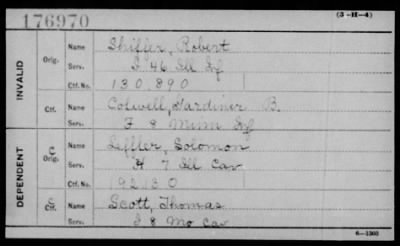 176970
(3-H-4)
INVALID
Orig. Name Shiffer, Robert
Serv. 46 Ill Inf
Ctf. No. 130,890
Ctf. Name Colwell, Gardiner B.
Serv. F 8 Minn Inf
DEPENDENT
C Orig. Name Leffler, Solomon
Serv. H 7 Ill Cav
Ctf. No. 192130
C Ctf. Name Scott, Thomas
Serv. 8 Mo Cav